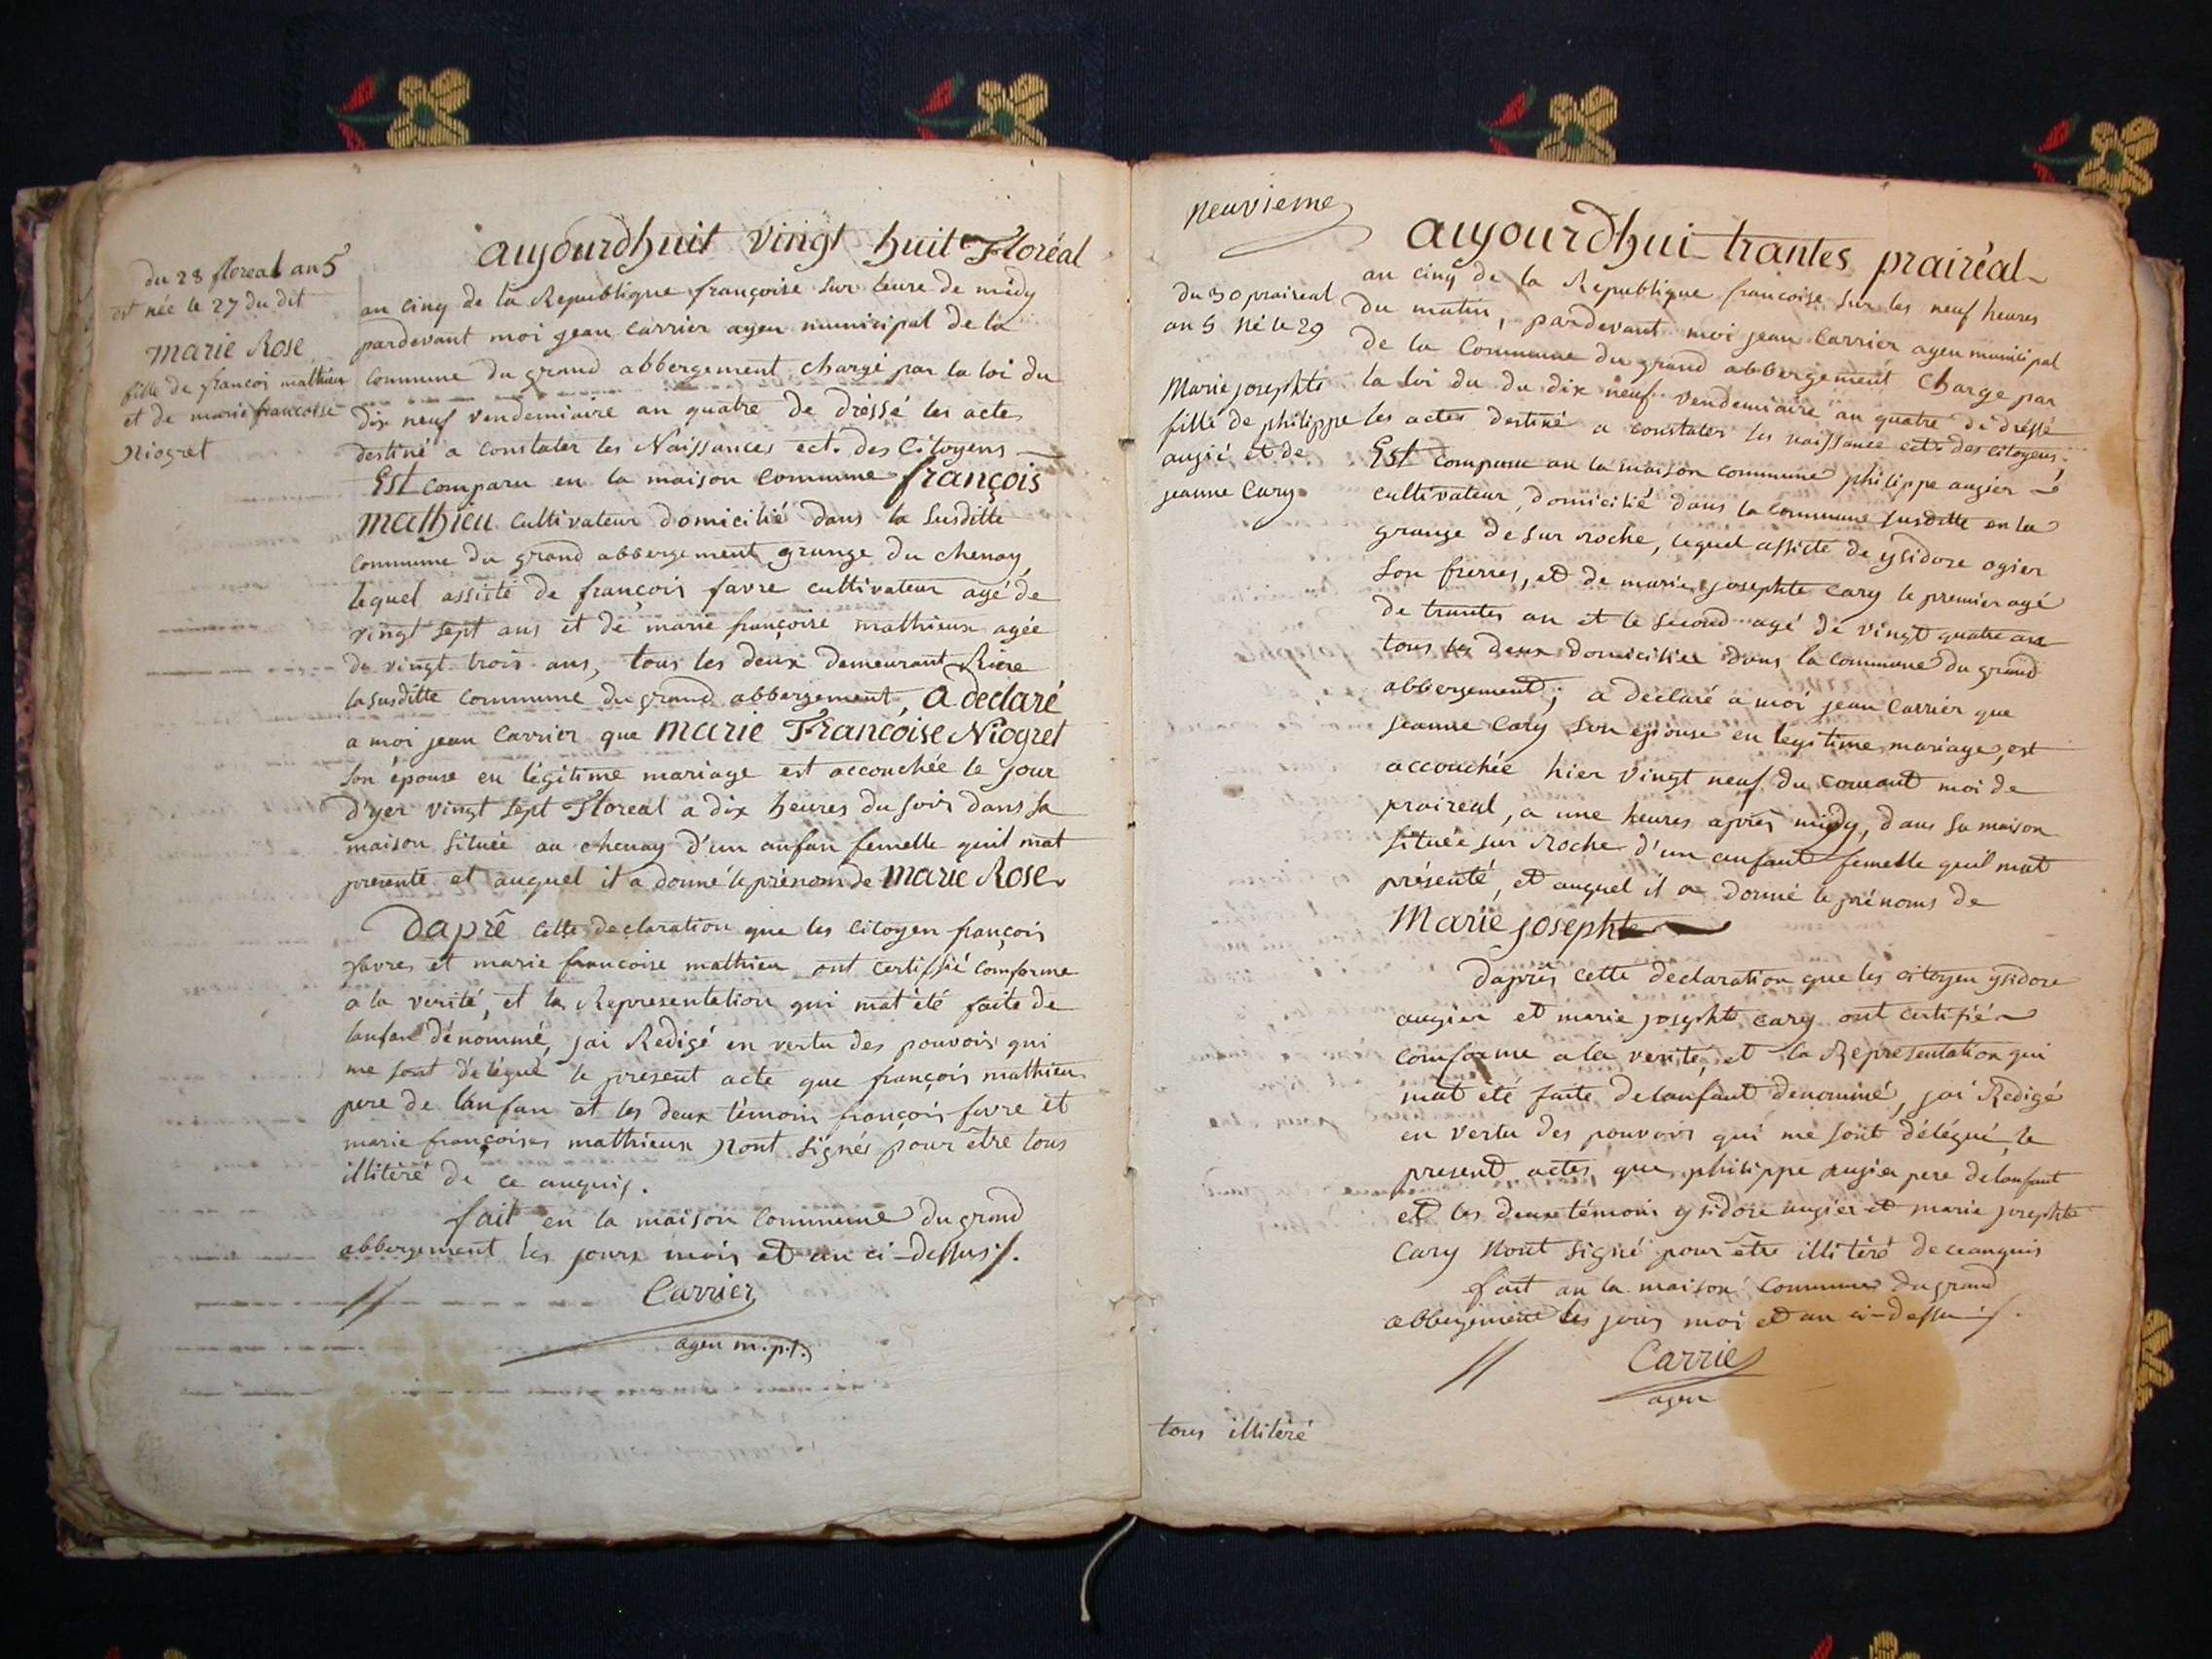 du 28 floreal an 5
est née le 27 du dit
marie Rose
fille de françois mathieu
et de marie francoise
Niogret
aujourdhuit vingt huit Floréal
an cinq de la Republique françoise sur leure de midy
pardevant moi jean Carrier agen municipal de la
Commune du grand abbergement chargé par la loi du
dix neuf vendemiaire an quatre de dréssé les actes
destiné a Constater les Naissances ect. des Citoyens
Est comparu en la maison Commune françois
mathieu cultivateur domicilié dans la susditte
Commune du grand abbergement grange du chenay,
lequel assisté de françois favre cultivateur agé de
vingt sept ans et de marie françoise mathieux agée
de vingt trois ans, tous les deux demeurant Riere
la susditte commune du grand abbergement, a declaré
a moi jean Carrier que marie Françoise Niogret
son épouse en légitime mariage est accouchée le jour
d'yer vingt sept Floreal a dix heures du soir dans sa
maison située au chenay d'un anfan femelle quil mat
presenté et auquel il a donné le prénom de marie Rose
Daprê cette declaration que les Citoyen françois
favres et marie francoise mathieu ont certiffié comforme
a la verité, et la Representation qui mat été faite de
lanfan dénommé, jai Redigé en vertu des pouvoirs qui
me sont délégué le present acte que françois mathieu
pere de lanfan et les deux témoin françois favre et
marie françoises matthieux Nont signés pour être tous
illitéré de ce anquis.
fait en la maison Commune du grand
abbergement les jours mois et an ci-dessus /.
Carrier
agen m.p.l.
neuvieme
du 30 praireal
an 5 né le 29
Marie josephte
fille de philippe
augié et de
jeanne Cary
aujourdhui trantes prairéal
an cinq de la Republique francoise sur les neuf heures
du matin, pardevant moi jean Carrier agen municipal
de la Commune du grand abbergement Charge par
la loi du du dix neuf vendemiaire an quatre de dréssé
les actes destiné a constater les naissance ect. des citoyens.
Est comparu an la maison commune philippe augier
cultivateur, domicilié dans la commune susditte en la
grange de sur roche, lequel assicté de ysidore ogier
son frerres, et de marie josephte Cary le premier agé
de trantes an et le second agé de vingt quatre ans
tous les deux domiciliée dans la commune du grand
abbergement; a declaré a moi jean Carrier que
jeanne Cary son epouse en legitime mariage, est
accouchée hier vingt neuf du courant moi de
praireal, a une heures après midy, dans sa maison
située sur Roche d'un anfant femelle quil mat
présenté, et auquel il a donné le prénoms de
Marie josephte
daprès cette declaration que les citoyen ysidore
augier et marie josephte cary ont certifié
comforme a la verité, et la Representation qui
mat eté faite de lanfant denommé, jai Redigé
en vertu des pouvoirs qui me sont délégué, le
present actes que philippe augier pere de lanfant
et les deux témoins ysidore augier et marie josephte
Cary Nont signé pour être illitéré de ce anquis
fait an la maison Commune du grand
abbergement les jours moi et an ci-dessu /.
Carrier
agen
tous illitéré